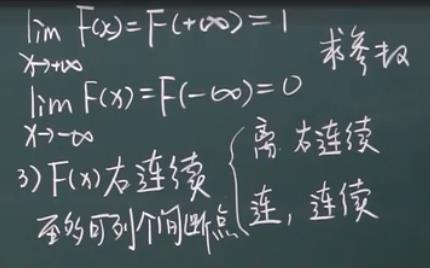 lim F(x)=F(+∞)=1
x→+∞
求参数
lim F(x)=F(-∞)=0
x→-∞
3) F(x)右连续
至多可列个间断点
离 右连续
连, 连续